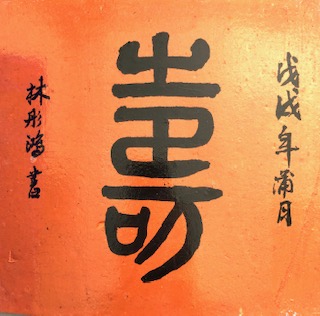 戊戌年蒲月
壽
林彤鴻書